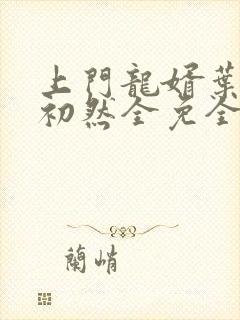 上門龍婿葉
初然全免全
蘭峭